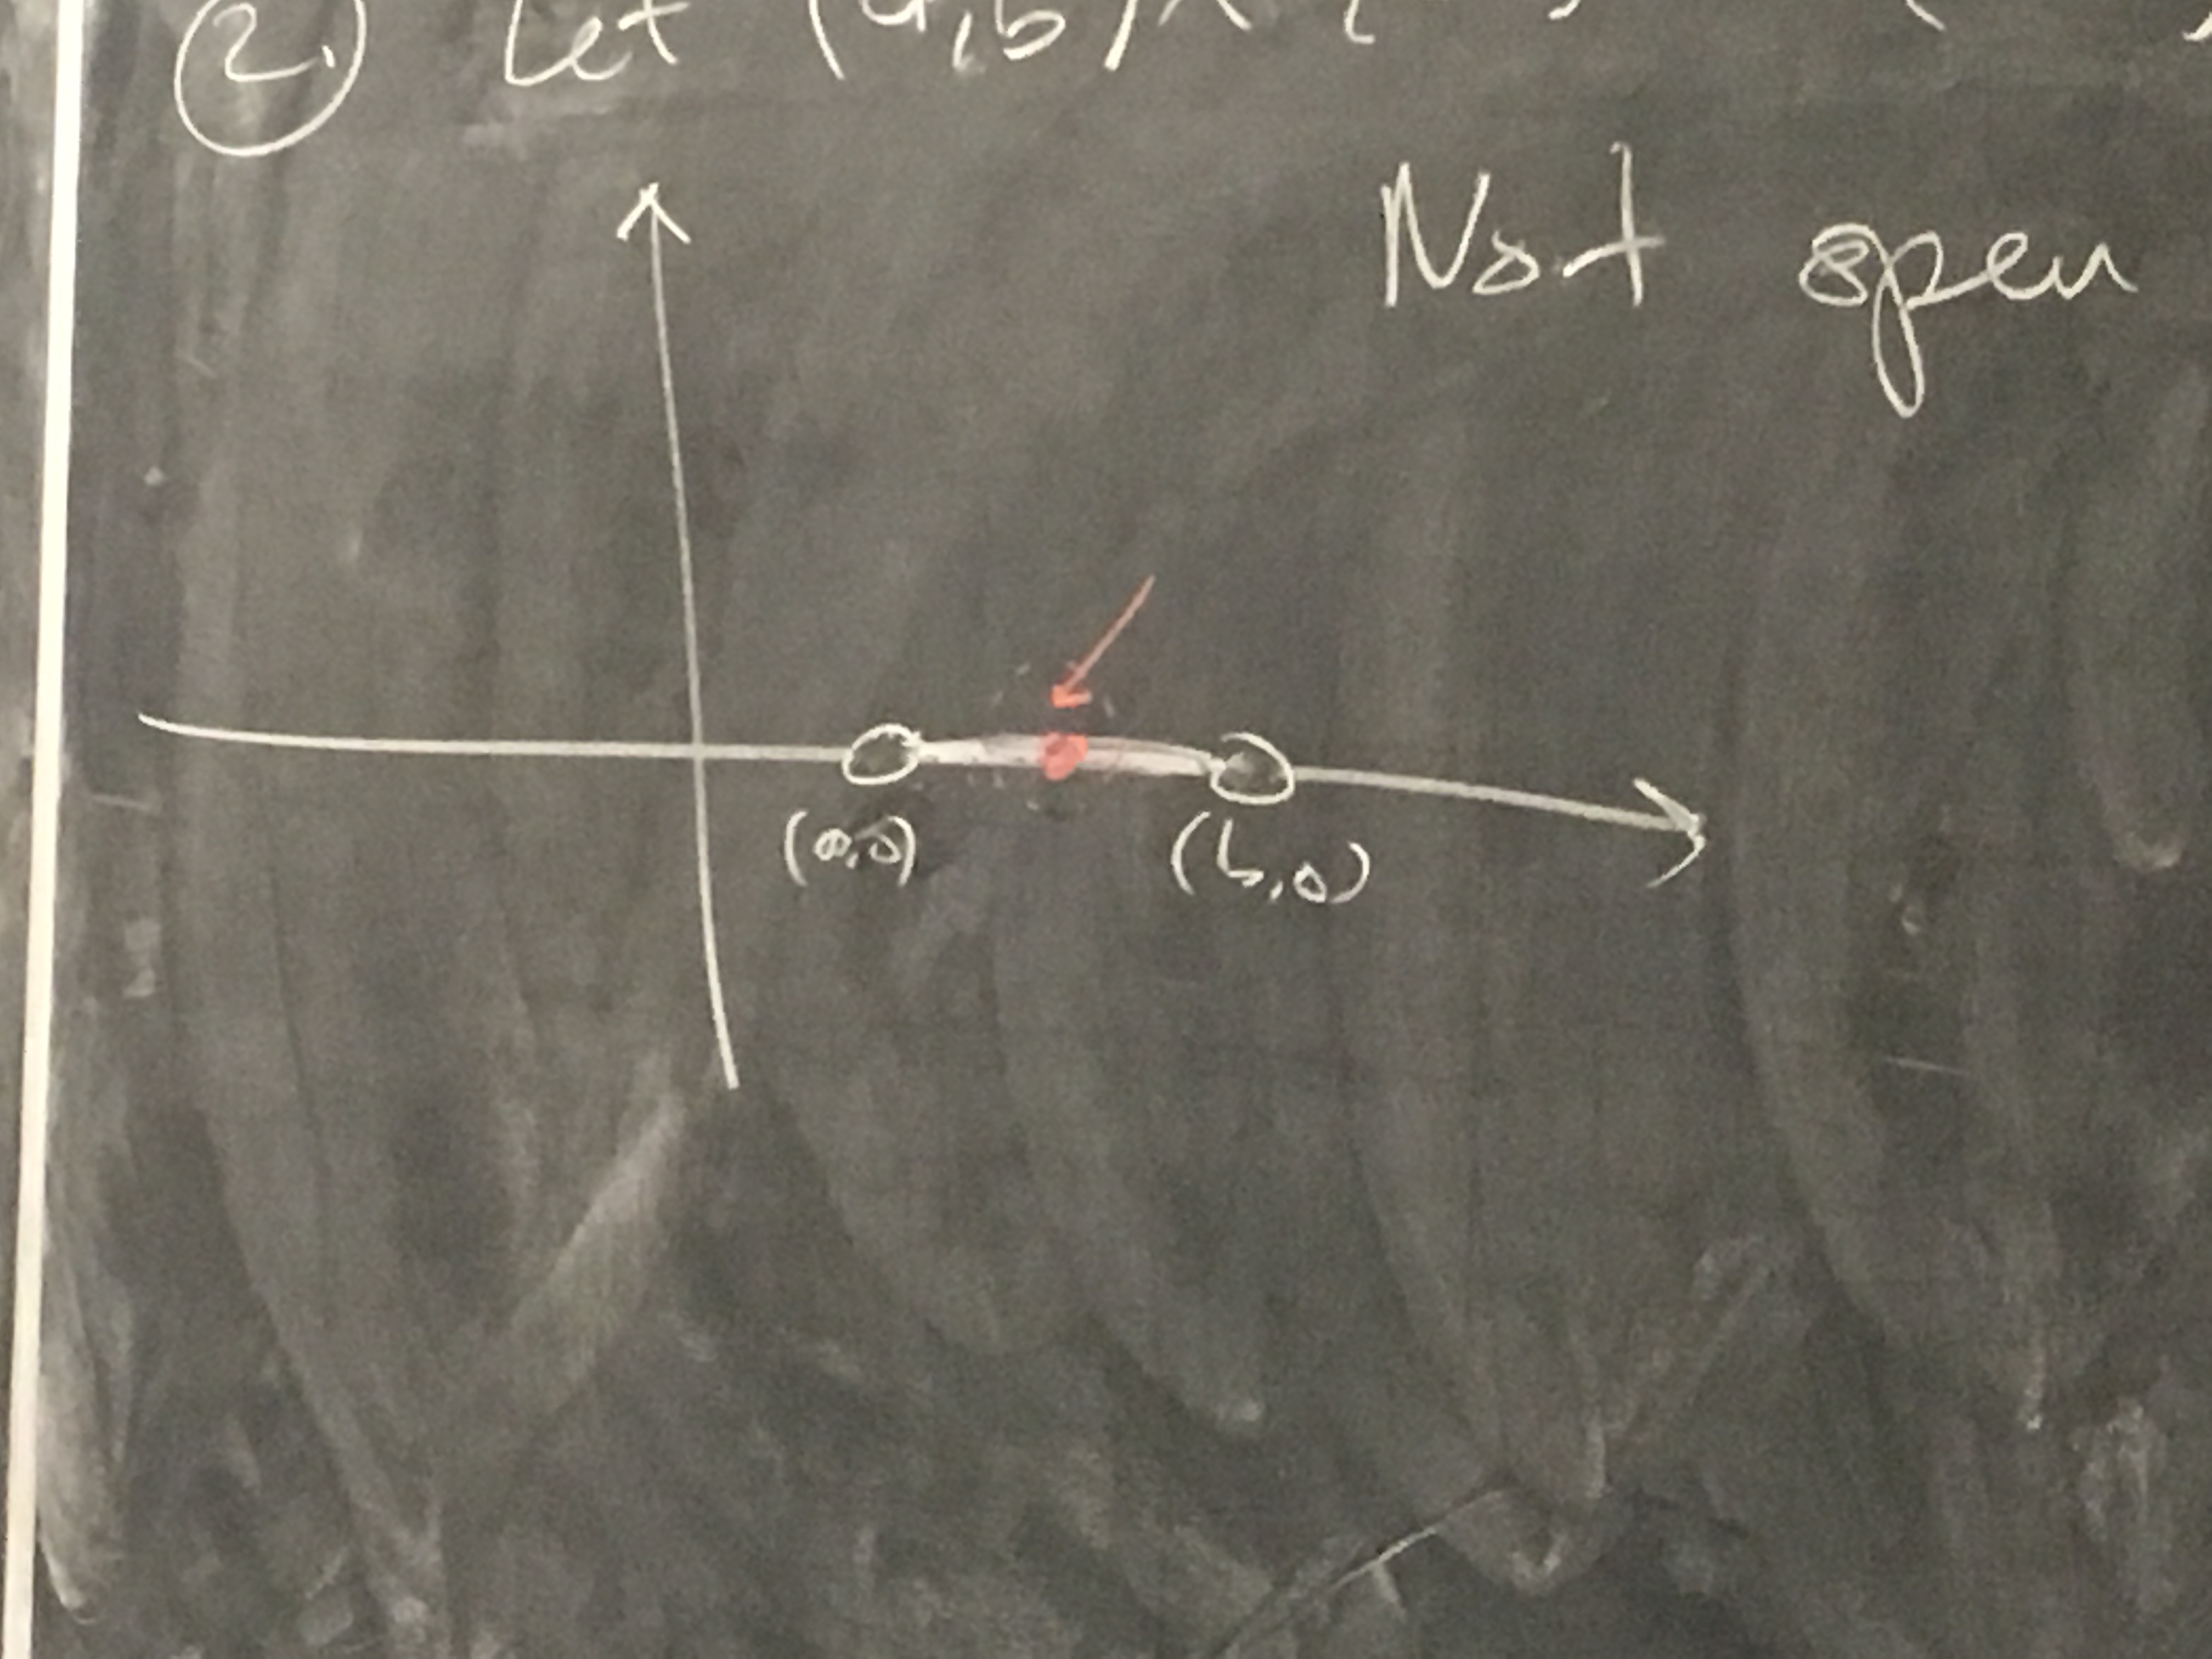 ② Let (a,b) ×
Not open
(a,0)
(b,0)